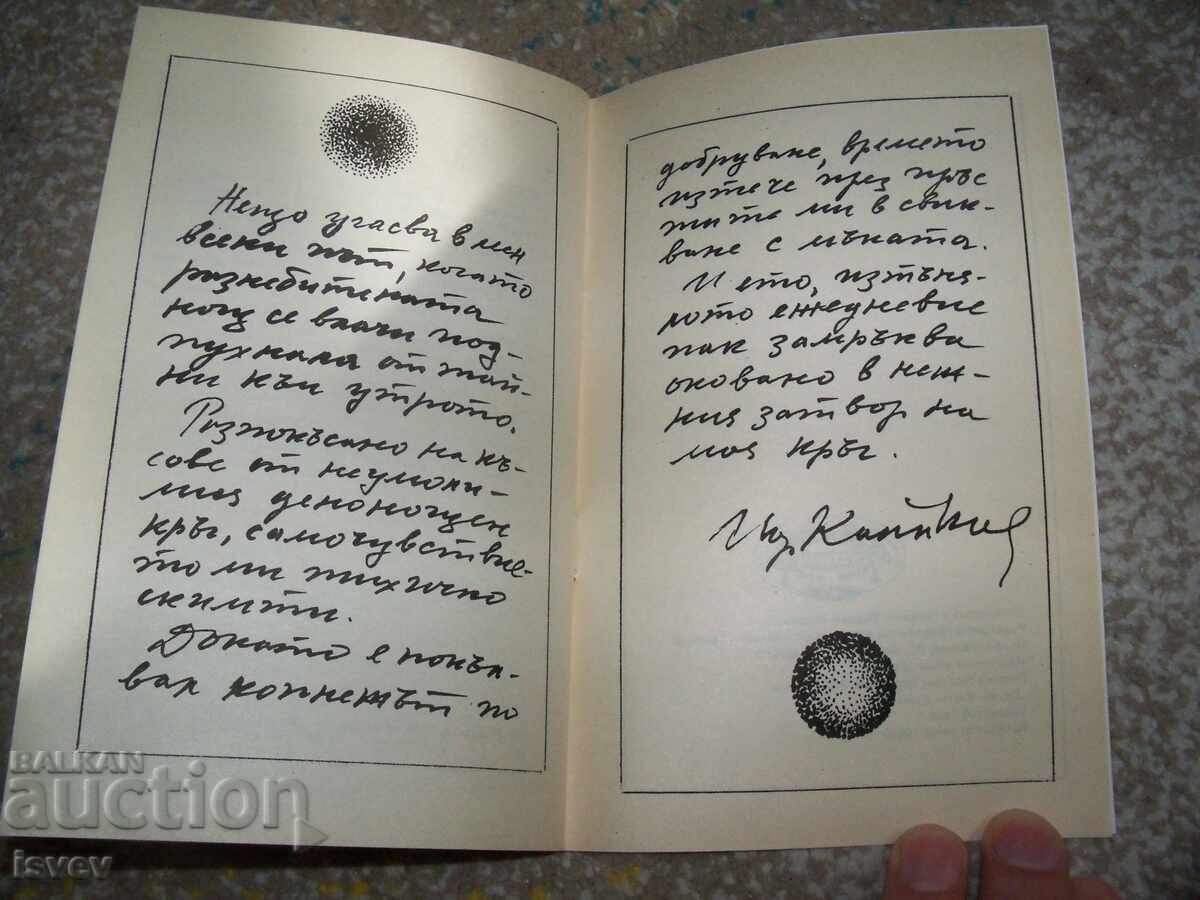 Нещо угасва в мен
всеки път, когато
разнебитената
нощ се влачи под-
пухнала от тай-
ни към утрото.
Разпокъсано на къ-
сове от неумоли-
мия денонощен
кръг, самочувствие-
то ми тихичко
скимти.
Докато е покъл-
вал копнежът по
добруване, времето
изтече през пръс
тите ми в свик-
ване с мъката.
И ето, изтъня-
лото ежедневие
пак замръква
оковано в неж-
ния затвор на
моя кръг.
BALKAN
auction
isvev